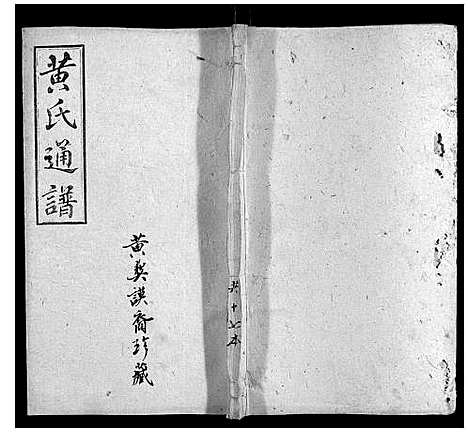 黄氏通譜
黄奠謨裔珍藏
共十七本